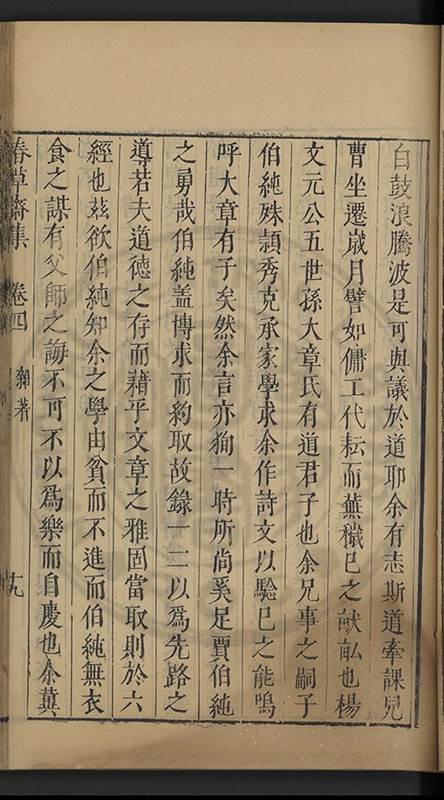 白鼓浪騰波是可與議於道耶余有志斯道牽課兒
曹坐遷歲月譬如傭工代耘而蕪穢已之畎畝也楊
文元公五世孫大章氏有道君子也余兄事之嗣子
伯純殊頴秀克承家學求余作詩文以驗已之能嗚
呼大章有子矣然余言亦狥一時所尚奚足賈伯純
之勇哉伯純蓋博求而約取故錄一二以爲先路之
導若夫道德之存而藉乎文章之雅固當取則於六
經也茲欲伯純知余之學由貧而不進而伯純無衣
食之謀有父師之誨不可不以爲樂而自慶也余冀
春草齋集 卷四 雜著 十九